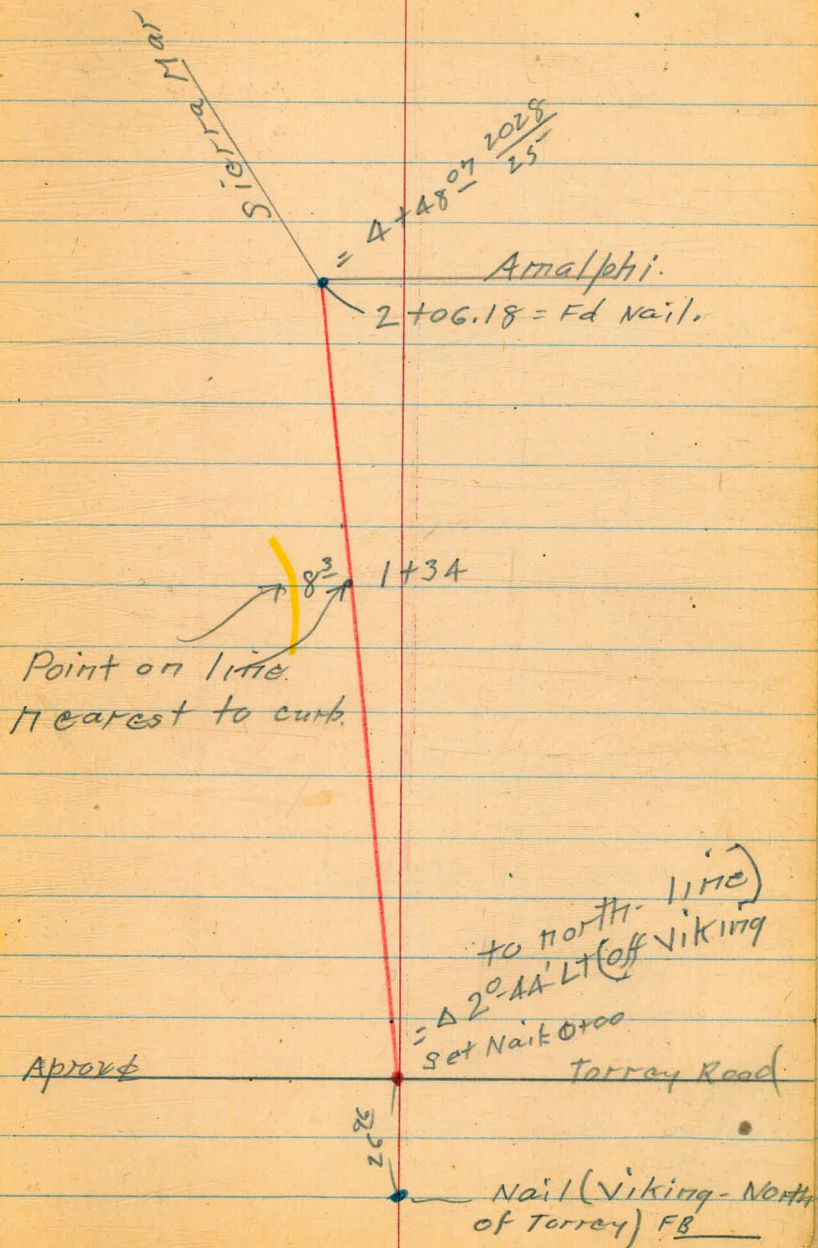 Sierra Mar
= 4+48 07 2028
25
Amalphi.
2+06.18 = Fd Nail.
8 3
1+34
Point on line
nearest to curb.
to north- line)
= Δ 2°-44' Lt (off Viking
Set Nail 0+00
Aprox ¢
Torrey Road
Nail (Viking - North
of Torrey) FB